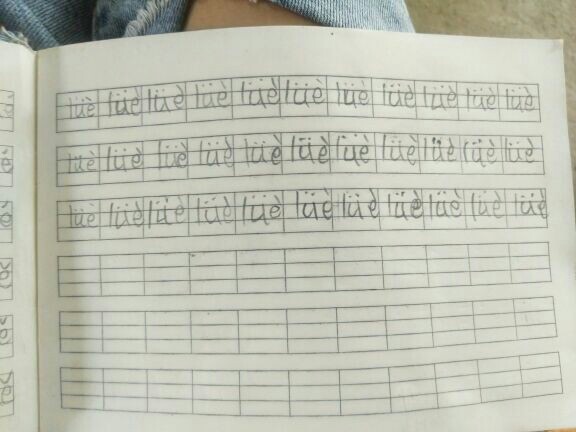 lüè lüè lüè lüè lüè lüè lüè lüè lüè lüè lüè
lüè lüè lüè lüè lüè lüè lüè lüè lüè lüè lüè
lüè lüè lüè lüè lüè lüè lüè lüè lüè lüè lüè